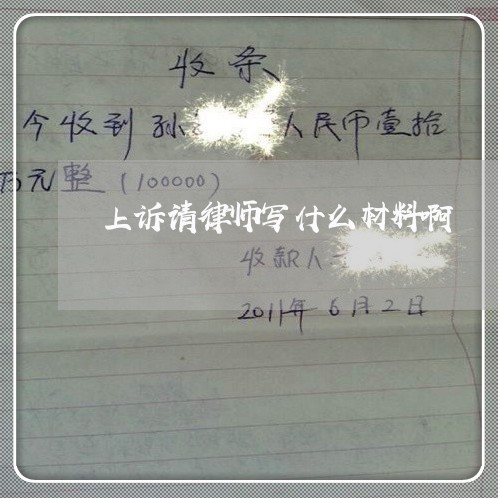 收条
今收到孙 人民币壹拾
万元整(100000)
上诉请律师写什么材料啊
收款人
2011年6月2日